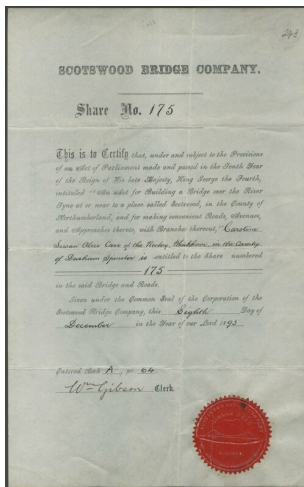 SCOTSWOOD BRIDGE COMPANY.
Share No. 175
This is to Certify that, under and subject to the Provisions
of an Act of Parliament made and passed in the Tenth Year
of the Reign of His late Majesty, King George the Fourth,
intituled "An Act for Building a Bridge over the River
Tyne at or near to a place called Scotswood, in the County of
Northumberland, and for making convenient Roads, Avenues,
and Approaches thereto, with Branches thereout, Caroline
Swan Alice Carr of the Whickham, in the County
of Durham Spinster is entitled to the Share numbered
175
in the said Bridge and Roads.
Given under the Common Seal of the Corporation of the
Scotswood Bridge Company, this Eighth Day of
December in the Year of our Lord 1893
Entered Book A, po 64
Wm Gibson Clerk.